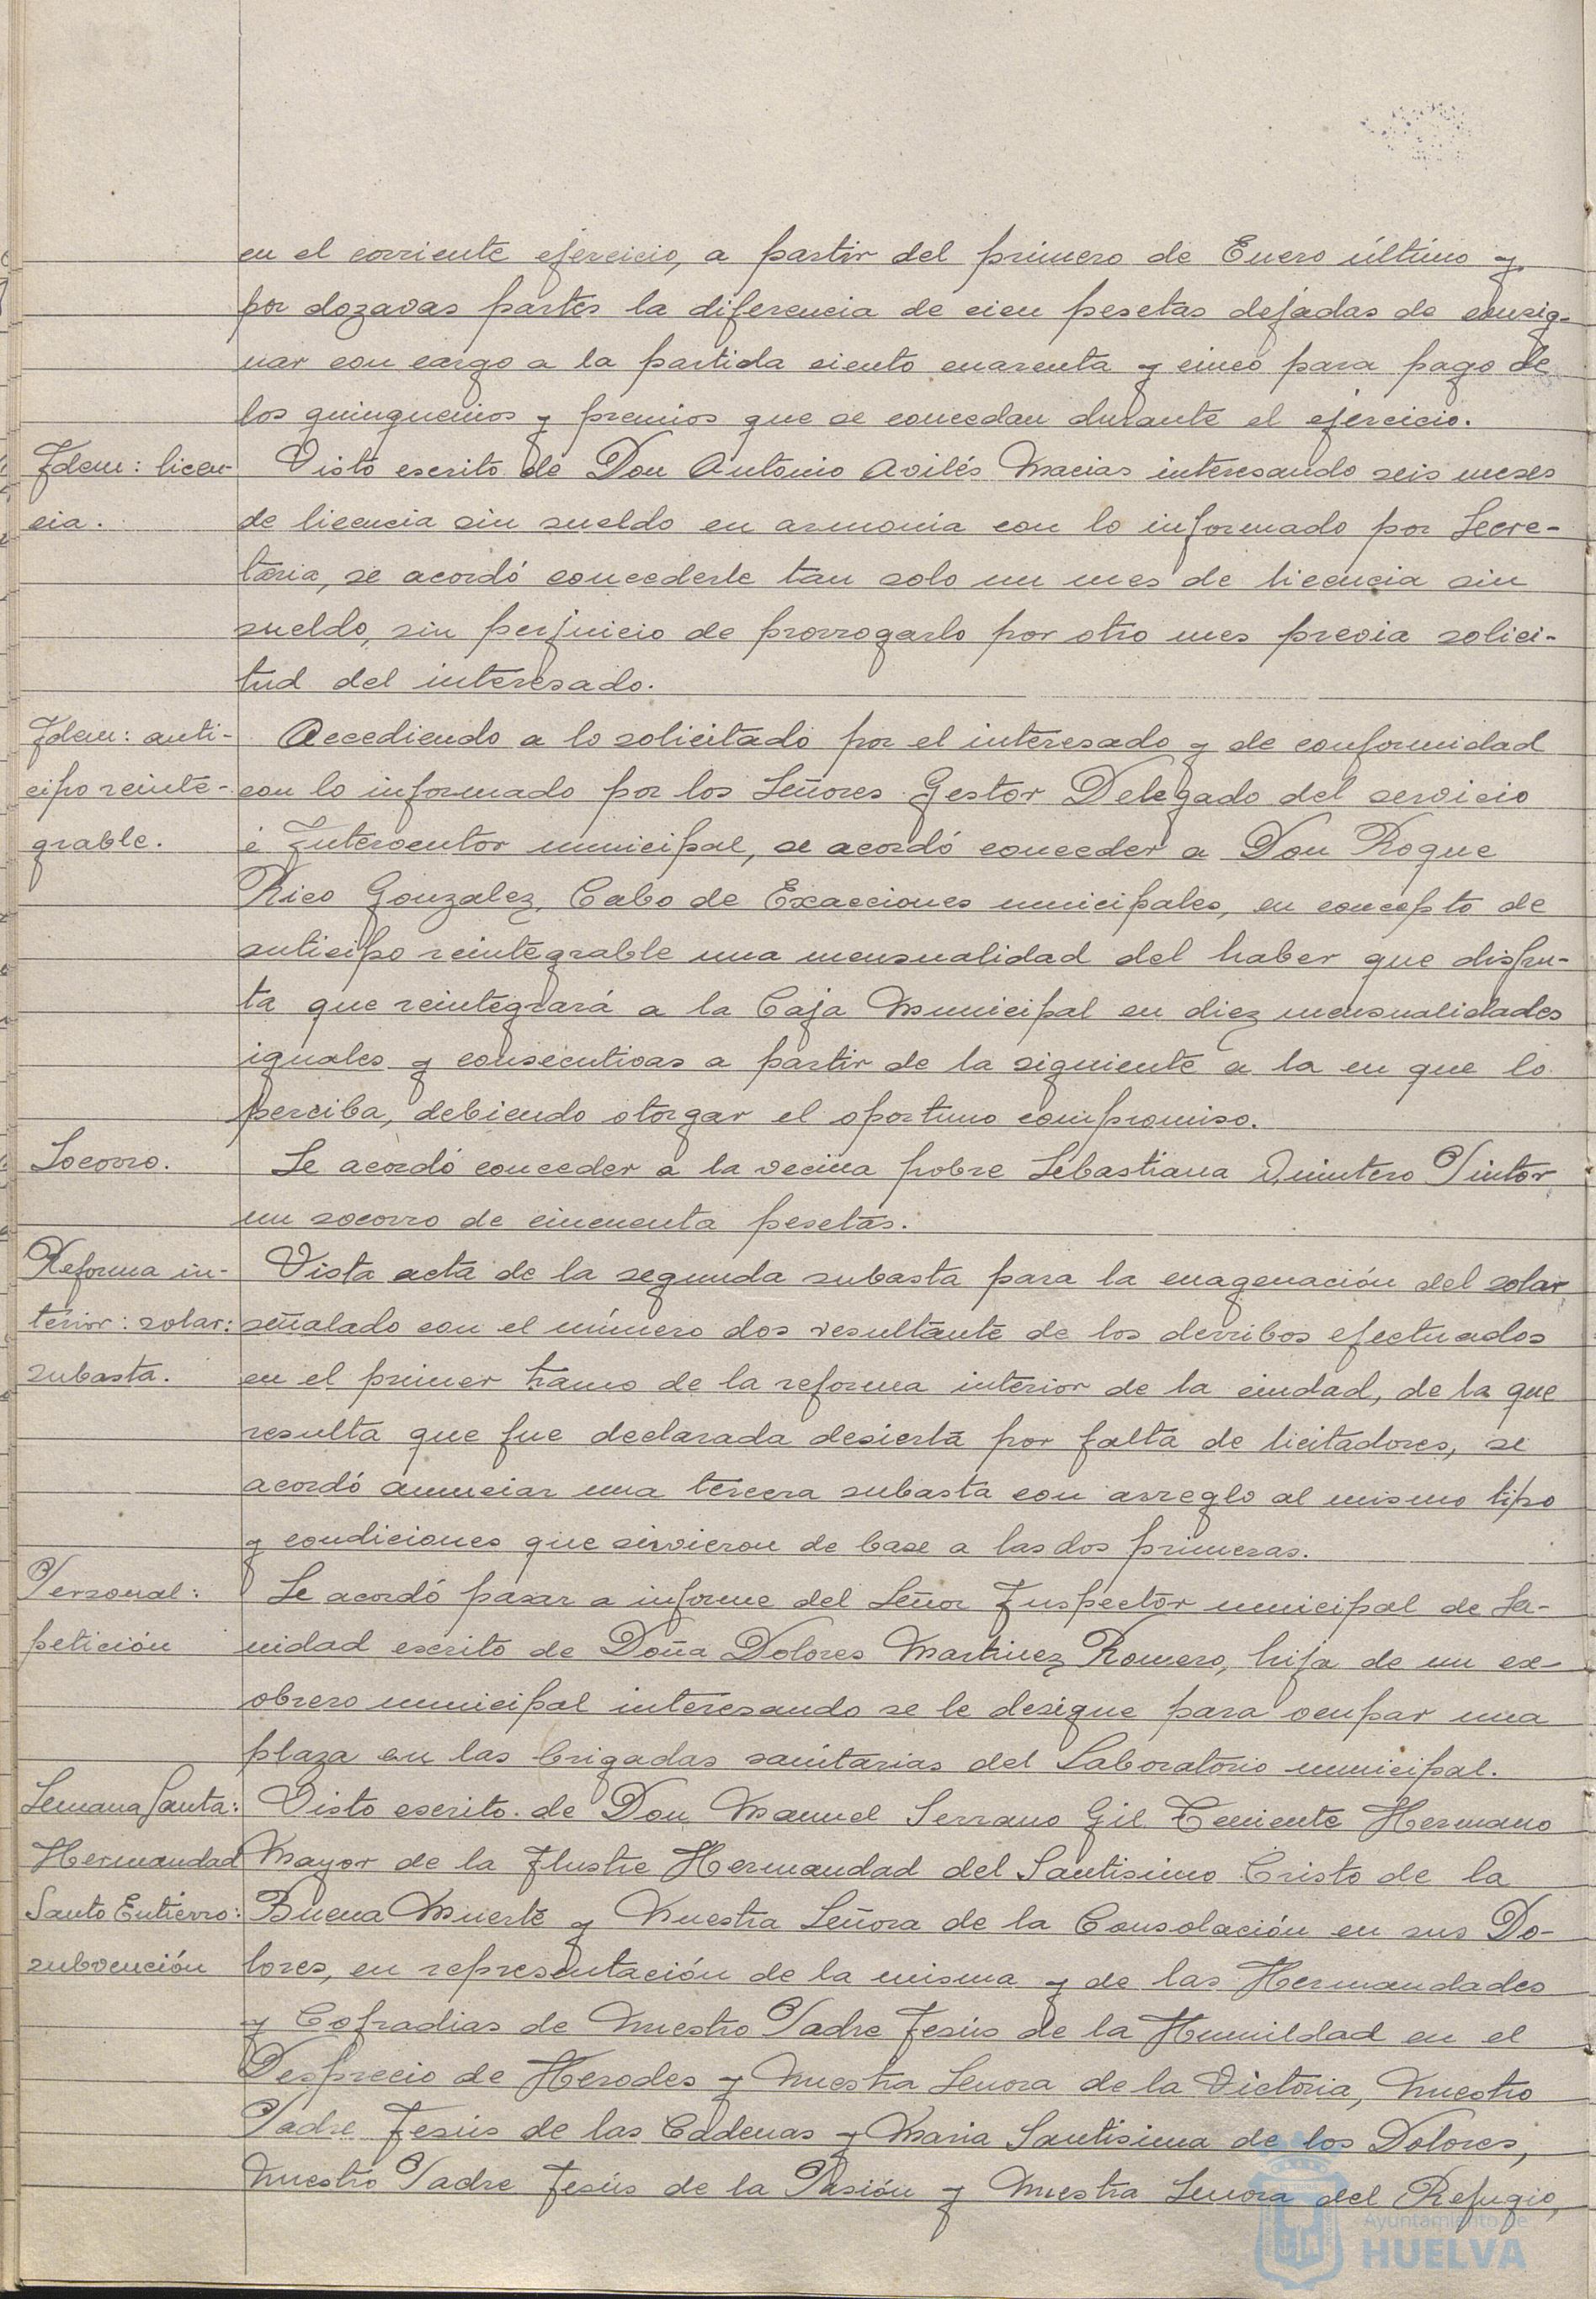 en el corriente ejercicio, a partir del primero de Enero último y
por dozavas partes la diferencia de cien pesetas dejadas de consig-
nar con cargo a la partida ciento cuarenta y cinco para pago de
los quinquenios y premios que se concedan durante el ejercicio.
Idem: licen-
cia.
Visto escrito de Don Antonio Avilés Macias interesando seis meses
de licencia sin sueldo en armonia con lo informado por Secre-
taria, se acordó concederle tan solo un mes de licencia sin
sueldo, sin perjuicio de prorrogarlo por otro mes previa solici-
tud del interesado.
Idem: anti-
cipo reinte-
grable.
Accediendo a lo solicitado por el interesado y de conformidad
con lo informado por los Señores Gestor Delegado del servicio
é Interventor municipal, se acordó conceder a Don Roque
Rico Gonzalez, Cabo de Exacciones municipales, en concepto de
anticipo reintegrable una mensualidad del haber que disfru-
ta que reintegrará a la Caja Municipal en diez mensualidades
iguales y consecutivas a partir de la siguiente a la en que lo
perciba, debiendo otorgar el oportuno compromiso.
Socorro.
Se acordó conceder a la vecina pobre Sebastiana Quintero Pintor
un socorro de cincuenta pesetas.
Reforma in-
terior: solar:
subasta.
Vista acta de la segunda subasta para la enagenación del solar
señalado con el número dos resultante de los derribos efectuados
en el primer tramo de la reforma interior de la ciudad, de la que
resulta que fue declarada desierta por falta de licitadores, se
acordó anunciar una tercera subasta con arreglo al mismo tipo
y condiciones que sirvieron de base a las dos primeras.
Personal:
petición
Se acordó pasar a informe del Señor Inspector municipal de Sa-
nidad escrito de Doña Dolores Martinez Romero, hija de un ex-
obrero municipal interesando se le designe para ocupar una
plaza en las brigadas sanitarias del Laboratorio municipal.
Semana Santa:
Hermandad
Santo Entierro:
subvención
Visto escrito de Don Manuel Serrano Gil Teniente Hermano
Mayor de la Ilustre Hermandad del Santisimo Cristo de la
Buena Muerte y Nuestra Señora de la Consolación en sus Do-
lores, en representación de la misma y de las Hermandades
y Cofradias de Nuestro Padre Jesús de la Humildad en el
Desprecio de Herodes y Nuestra Senora de la Victoria, Nuestro
Padre Jesús de las Cadenas y Maria Santisima de los Dolores,
Nuestro Padre Jesús de la Pasión y Nuestra Senora del Refugio,
Ayuntamiento de
HUELVA